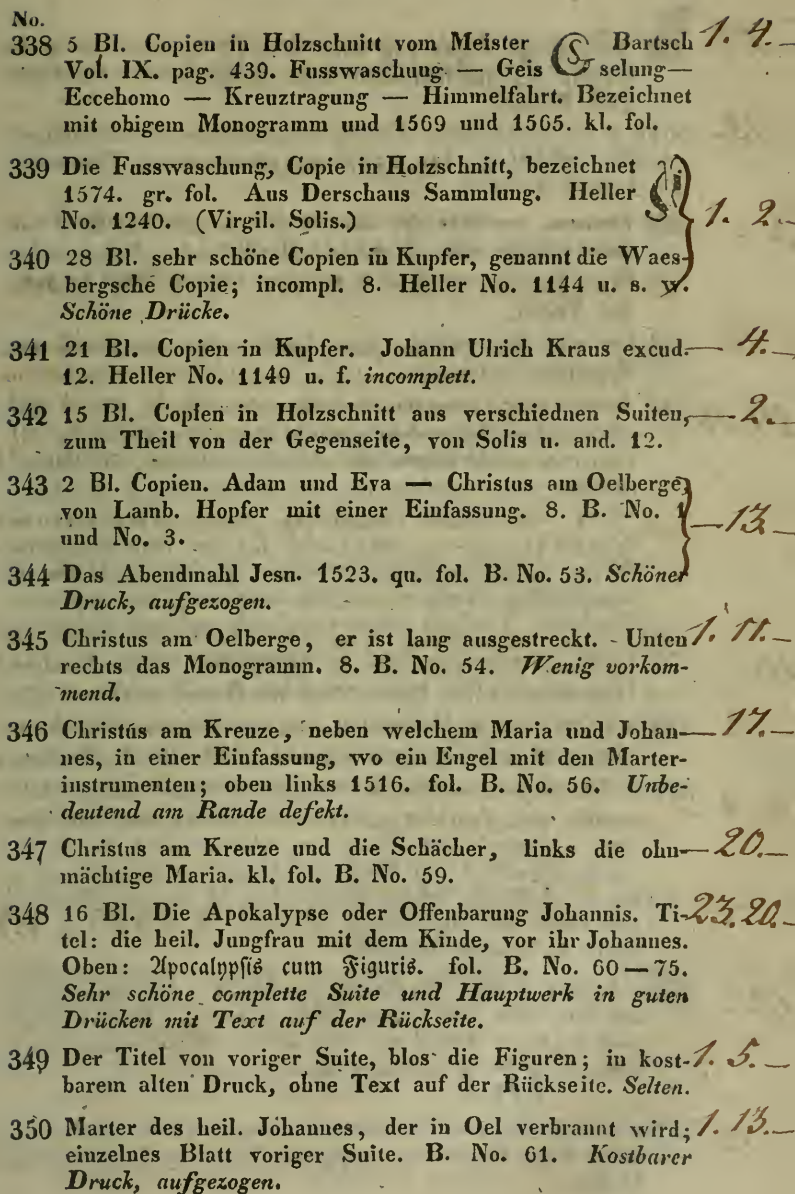 No.
338 5 Bl. Copien in Holzschnitt vom Meister Bartsch 1. 4. —
Vol. IX. pag. 439. Fusswaschuug — Geisselung—
Eccehomo — Kreuztragung — Himmelfahrt. Bezeichnet
mit obigem Monogramm und 1569 und 1565. kl. fol.
339 Die Fusswaschung, Copie in Holzschnitt, bezeichnet
1574. gr. fol. Aus Derschaus Sammlung. Heller
No. 1240. (Virgil. Solis.) 1. 2. —
340 28 Bl. sehr schöne Copien in Kupfer, genannt die Waes-
bergsche Copie; incompl. 8. Heller No. 1144 u. s. w.
Schöne Drücke.
341 21 Bl. Copien in Kupfer. Johann Ulrich Kraus excud. — 4. —
12. Heller No. 1149 u. f. incomplett.
342 15 Bl. Copien in Holzschnitt aus verschiednen Suiten, — 2. —
zum Theil von der Gegenseite, von Solis u. and. 12.
343 2 Bl. Copien. Adam und Eva — Christus am Oelberge,
von Lamb. Hopfer mit einer Einfassung. 8. B. No. 1
und No. 3. — 13 —
344 Das Abendmahl Jesu. 1523. qu. fol. B. No. 53. Schöner
Druck, aufgezogen.
345 Christus am Oelberge, er ist lang ausgestreckt. Unten 1. 11. —
rechts das Monogramm. 8. B. No. 54. Wenig vorkom-
mend.
346 Christus am Kreuze, neben welchem Maria und Johan- — 17. —
nes, in einer Einfassung, wo ein Engel mit den Marter-
instrumenten; oben links 1516. fol. B. No. 56. Unbe-
deutend am Rande defekt.
347 Christus am Kreuze und die Schächer, links die ohn- — 20. —
mächtige Maria. kl. fol. B. No. 59.
348 16 Bl. Die Apokalypse oder Offenbarung Johannis. Ti- 23. 20. —
tel: die heil. Jungfrau mit dem Kinde, vor ihr Johannes.
Oben: Apocalypsis cum Figuris. fol. B. No. 60 — 75.
Sehr schöne complette Suite und Hauptwerk in guten
Drücken mit Text auf der Rückseite.
349 Der Titel von voriger Suite, blos die Figuren; in kost- 1. 5. —
barem alten Druck, ohne Text auf der Rückseite. Selten.
350 Marter des heil. Johannes, der in Oel verbrannt wird; 1. 13. —
einzelnes Blatt voriger Suite. B. No. 61. Kostbarer
Druck, aufgezogen.